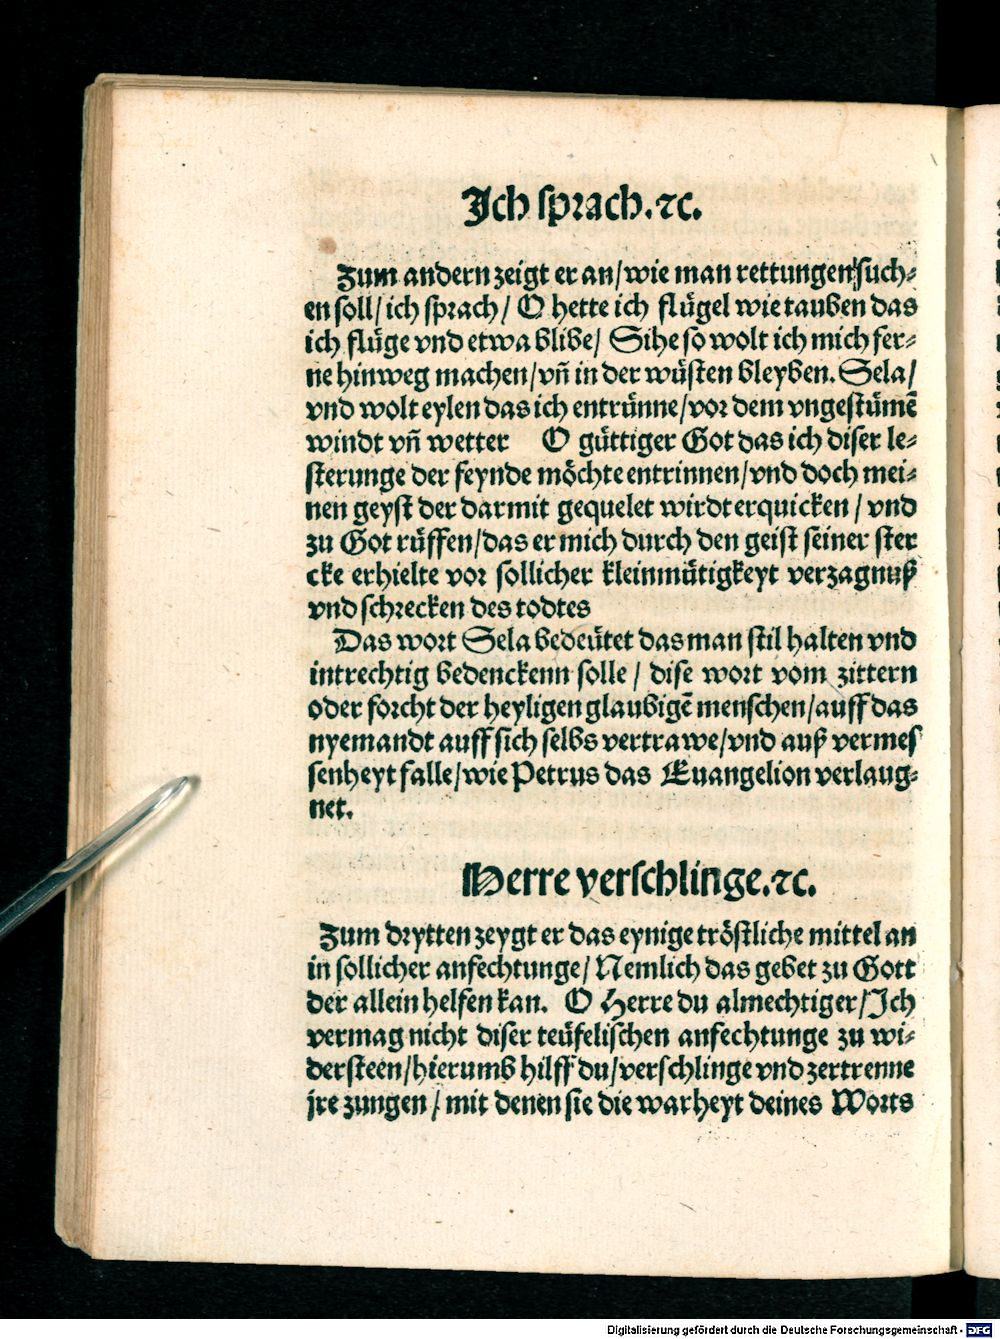 Ich sprach.⁊c.
Zum andern zeigt er an/wie man rettungen such⸗
en soll/ ich sprach/ O hette ich flügel wie tauben das
ich flüge vnd etwa blibe/ Sihe so wolt ich mich fer⸗
ne hinweg machen/vñ in der wüsten bleyben. Sela/
vnd wolt eylen das ich entrünne/vor dem vngestümē
windt vñ wetter O güttiger Got das ich diser le⸗
sterunge der feynde möchte entrinnen/vnd doch mei⸗
nen geyst der darmit gequelet wirdt erquicken / vnd
zu Got rüffen/das er mich durch den geist seiner ster
cke erhielte vor sollicher kleinmütigkeyt verzagnuß
vnd schrecken des todtes
Das wort Sela bedeütet das man stil halten vnd
intrechtig bedenckenn solle / dise wort vom zittern
oder forcht der heyligen glaubigē menschen/auff das
nyemandt auff sich selbs vertrawe/vnd auß vermes
senheyt falle/wie Petrus das Euangelion verlaug⸗
net.
Herre verschlinge.⁊c.
Zum drytten zeygt er das eynige tröstliche mittel an
in sollicher anfechtunge/ Nemlich das gebet zu Gott
der allein helfen kan. O Herre du almechtiger/Ich
vermag nicht diser teüfelischen anfechtunge zu wi⸗
dersteen/hierumb hilff du/verschlinge vnd zertrenne
jre zungen / mit denen sie die warheyt deines Worts
Digitalisierung gefördert durch die Deutsche Forschungsgemeinschaft - DFG